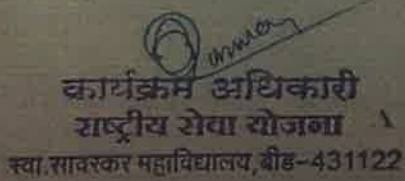 कार्यक्रम अधिकारी
राष्ट्रीय सेवा योजना
स्वा.सावरकर महाविद्यालय,बीड-431122